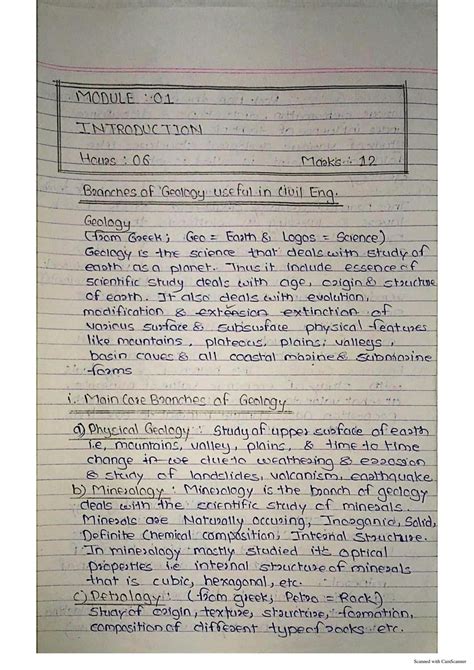 MODULE : 01
INTRODUCTION
Hours : 06 Marks : 12
Branches of Geology useful in Civil Eng.
Geology
(from Greek; Geo = Earth & Logos = Science)
Geology is the science that deals with study of
earth as a planet. Thus it include essence of
scientific study deals with age, origin & structure
of earth. It also deals with evolution,
modification & extension extinction of
various surface & subsurface physical features
like mountains, plateous, plains, valleys,
basin caves & all coastal marine & submarine
forms
i. Main Core Branches of Geology
a) Physical Geology : Study of upper surface of earth
i.e, mountains, valley, plains, & time to time
change in we due to weathering & erosion
& study of landslides, volcanism, earthquake.
b) Minerology : Minerology is the branch of geology
deals with the scientific study of minerals.
Minerals are Naturally occuring, Inorganic, Solid,
Definite Chemical composition, Internal Structure.
In minerology mostly studied its optical
properties i.e internal structure of minerals
that is cubic, hexagonal, etc.
c) Petrology : (from greek; Petro = Rock)
study of origin, texture, structure, formation,
composition of different type of rocks etc.
Scanned with CamScanner